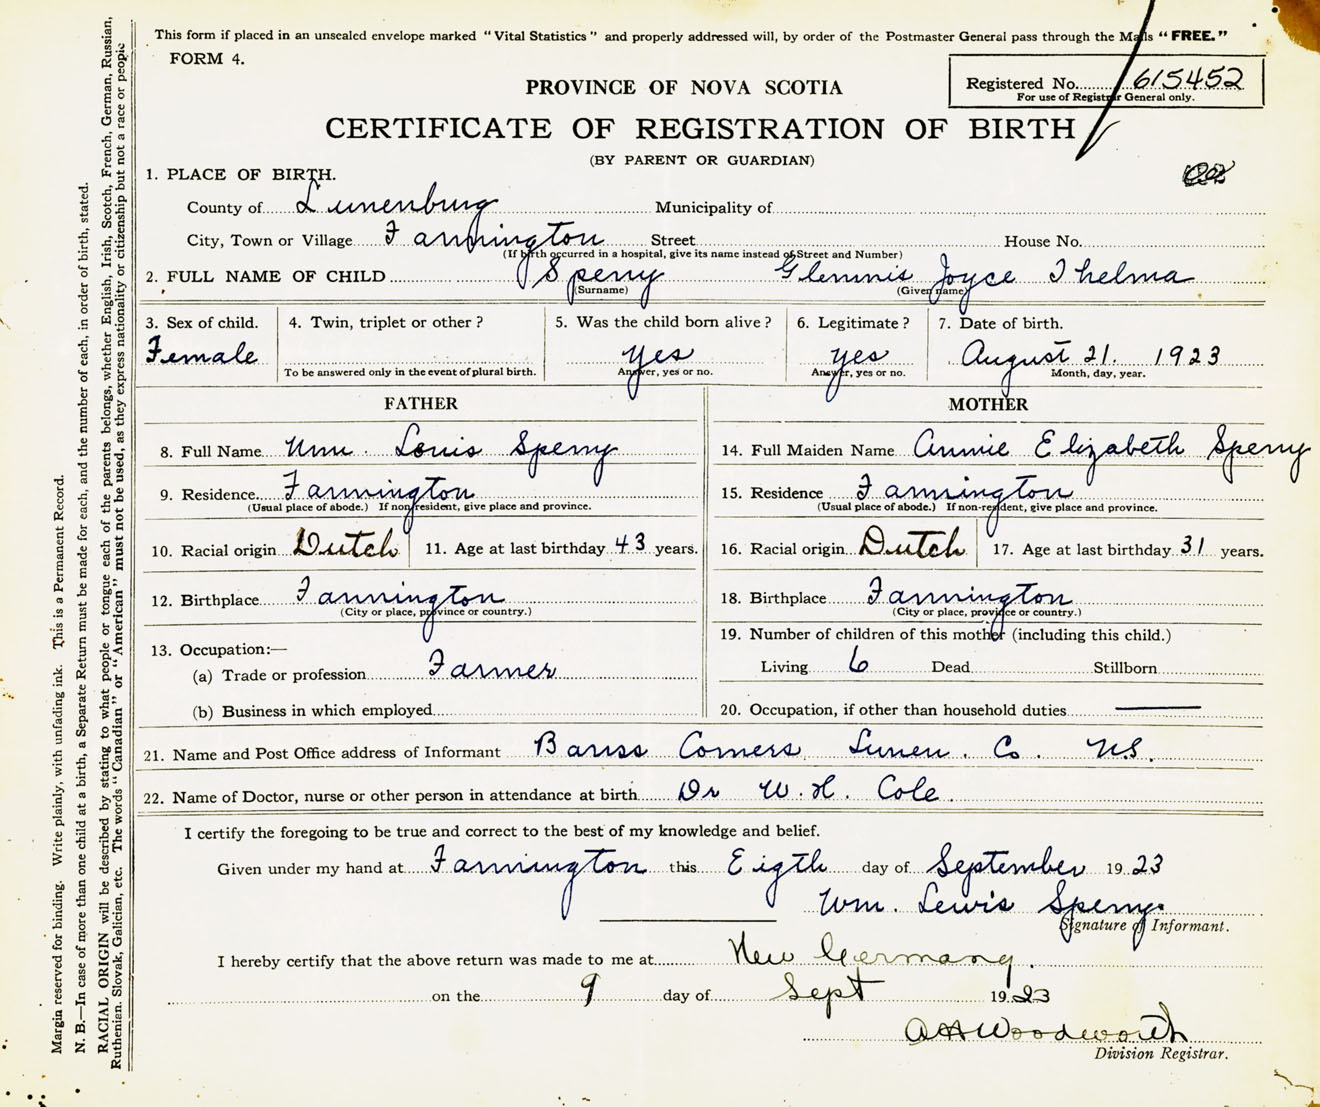 This form if placed in an unsealed envelope marked "Vital Statistics" and properly addressed will, by order of the Postmaster General pass through the Mails "FREE."
FORM 4.
Registered No. 615452
For use of Registrar General only.
PROVINCE OF NOVA SCOTIA
CERTIFICATE OF REGISTRATION OF BIRTH
(BY PARENT OR GUARDIAN)
1. PLACE OF BIRTH.
County of Lunenburg Municipality of
City, Town or Village Farmington Street House No.
(If birth occurred in a hospital, give its name instead of Street and Number)
2. FULL NAME OF CHILD Sperry Glennis Joyce Thelma
(Surname) (Given name)
3. Sex of child. 4. Twin, triplet or other? 5. Was the child born alive? 6. Legitimate? 7. Date of birth.
Female yes yes August 21. 1923
To be answered only in the event of plural birth. Answer, yes or no. Answer, yes or no. Month, day, year.
FATHER MOTHER
8. Full Name Wm. Louis Sperry 14. Full Maiden Name Annie Elizabeth Sperry
9. Residence Farmington 15. Residence Farmington
(Usual place of abode.) If non-resident, give place and province. (Usual place of abode.) If non-resident, give place and province.
10. Racial origin Dutch 11. Age at last birthday 43 years. 16. Racial origin Dutch 17. Age at last birthday 31 years.
12. Birthplace Farmington 18. Birthplace Farmington
(City or place, province or country.) (City or place, province or country.)
19. Number of children of this mother (including this child.)
13. Occupation:—
Living 6 Dead Stillborn
(a) Trade or profession Farmer
(b) Business in which employed 20. Occupation, if other than household duties
21. Name and Post Office address of Informant Barss Corners Lunen. Co. N.S.
22. Name of Doctor, nurse or other person in attendance at birth Dr W. H. Cole.
I certify the foregoing to be true and correct to the best of my knowledge and belief.
Given under my hand at Farmington this Eigth day of September 1923
Wm. Lewis Sperry
Signature of Informant.
I hereby certify that the above return was made to me at New Germany.
on the 9 day of Sept 1923
A A Woodworth
Division Registrar.
Margin reserved for binding. Write plainly, with unfading ink. This is a Permanent Record.
N. B.—In case of more than one child at a birth, a Separate Return must be made for each, and the number of each, in order of birth, stated.
RACIAL ORIGIN will be described by stating to what people or tongue each of the parents belongs, whether English, Irish, Scotch, French, German, Russian,
Ruthenian, Slovak, Galician, etc. The words "Canadian" or "American" must not be used, as they express nationality or citizenship but not a race or people